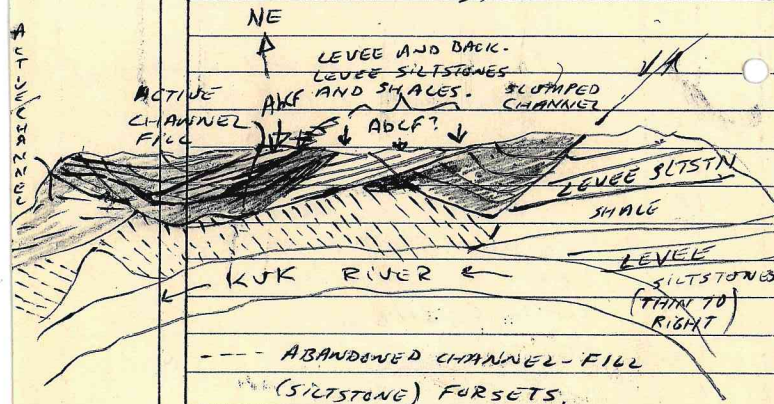 NE
ACTIVE CHANNEL
LEVEE AND BACK-
LEVEE SILTSTONES
AND SHALES.
ACTIVE
CHANNEL
FILL
AbCF
AbCF?
SLUMPED
CHANNEL
LEVEE SLTSTN
SHALE
LEVEE
SILTSTONES
(THIN TO
RIGHT)
KUK RIVER
---- ABANDONED CHANNEL-FILL
(SILTSTONE) FORSETS.